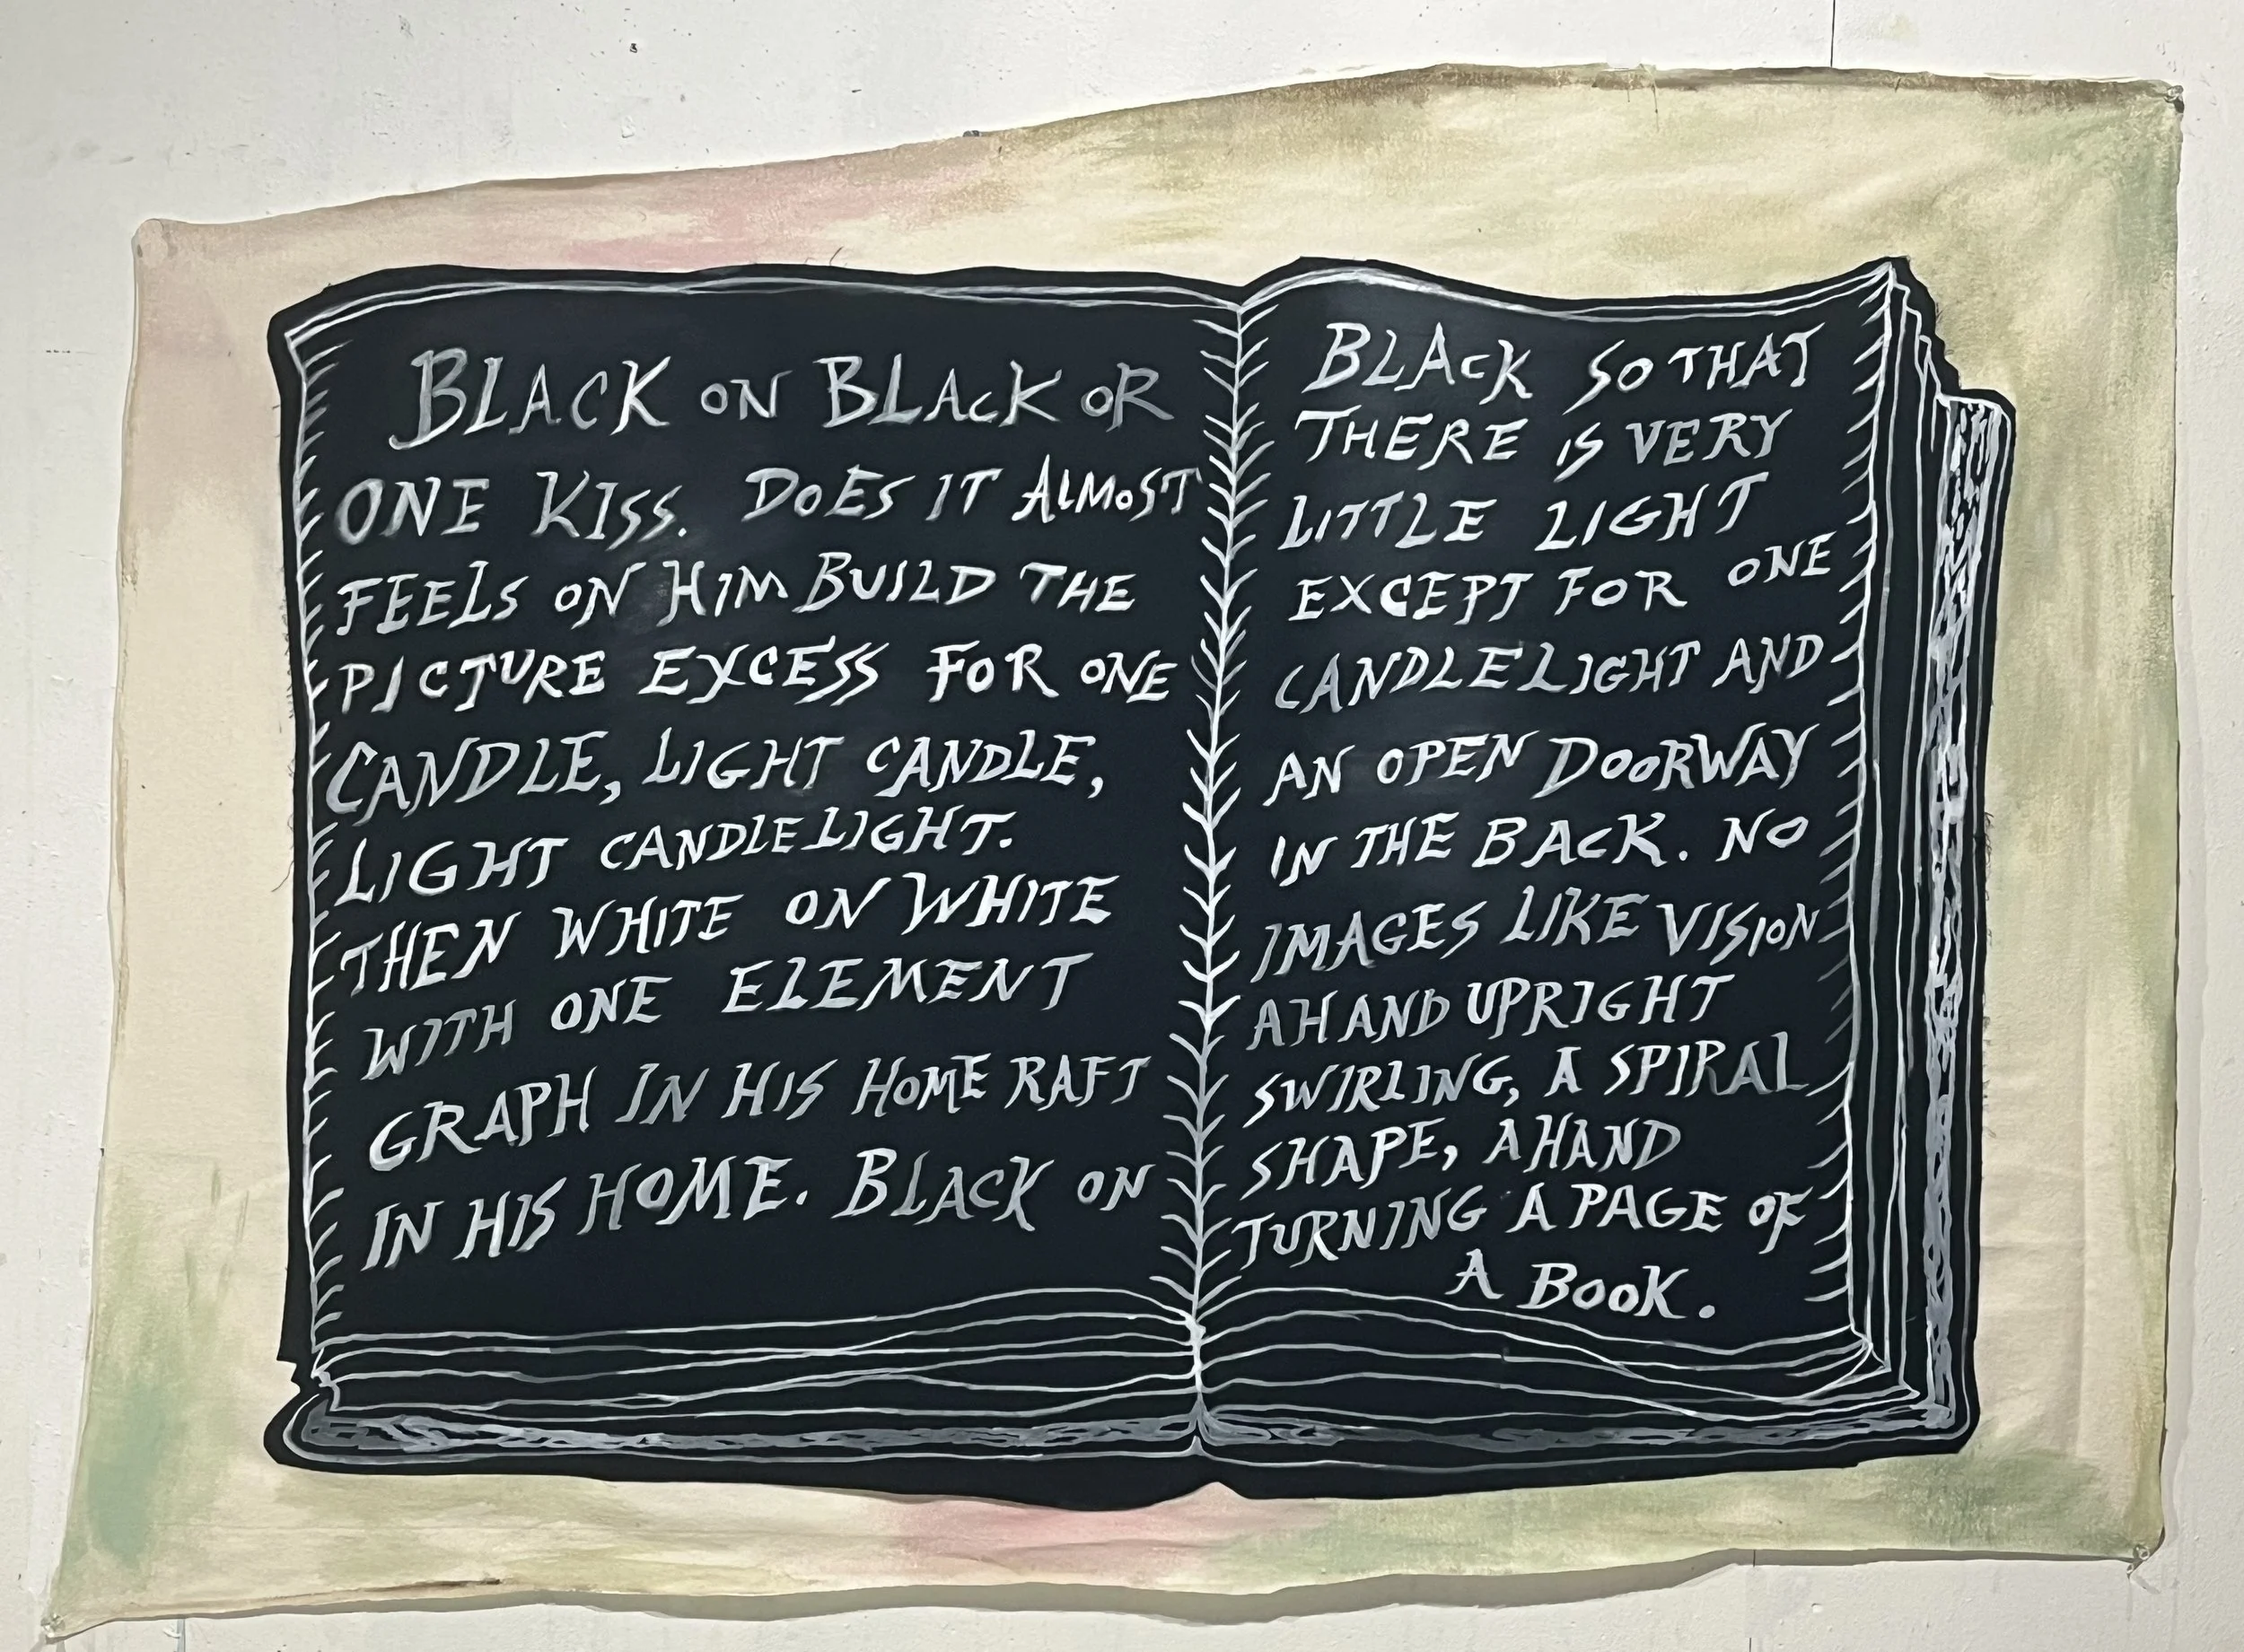 BLACK ON BLACK OR
ONE KISS. DOES IT ALMOST
FEELS ON HIM BUILD THE
PICTURE EXCESS FOR ONE
CANDLE, LIGHT CANDLE,
LIGHT CANDLELIGHT.
THEN WHITE ON WHITE
WITH ONE ELEMENT
GRAPH IN HIS HOME RAFT
IN HIS HOME. BLACK ON
BLACK SO THAT
THERE IS VERY
LITTLE LIGHT
EXCEPT FOR ONE
CANDLELIGHT AND
AN OPEN DOORWAY
IN THE BACK. NO
IMAGES LIKE VISION
A HAND UPRIGHT
SWIRLING, A SPIRAL
SHAPE, A HAND
TURNING A PAGE OF
A BOOK.